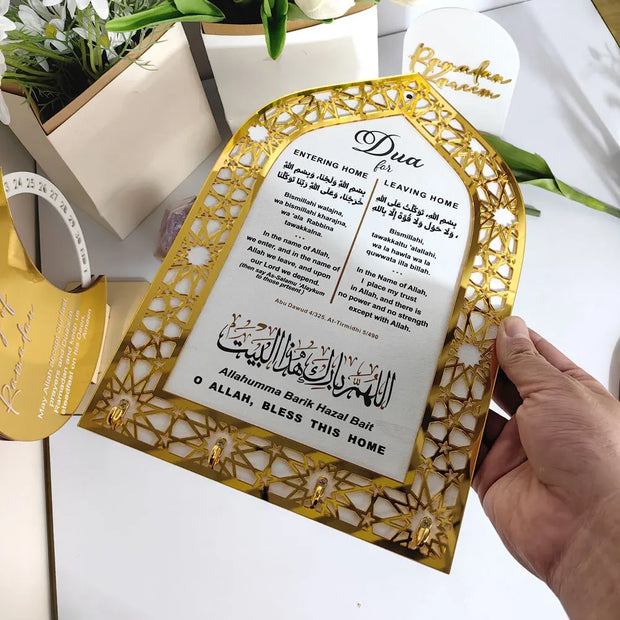 Dua
for
ENTERING HOME
بسم اللهُ وَلَجْنَا، وَبِسْمِ اللهِ
خَرَجْنَا، وَعَلَى اللهِ رَبِّنَا تَوَكَّلْنَا
Bismillahi walajna,
wa bismillahi kharajna,
wa 'ala Rabbina
tawakkalna.
...
In the name of Allah,
we enter, and in the name of
Allah we leave, and upon
our Lord we depend.
(then say As-Salamu 'Alaykum
to those present)
LEAVING HOME
بِسْمِ اللهِ، تَوَكَّلْتُ عَلَى اللهِ
، وَلَا حَوْلَ وَلَا قُوَّةَ إِلَّا بِاللهِ
Bismillahi,
tawakkaltu 'alallahi,
wa la hawla wa la
quwwata illa billah.
...
In the Name of Allah,
I place my trust
in Allah, and there is
no power and no strength
except with Allah.
Abu Dawud 4/325, At-Tirmidhi 5/490
اللهم بارك هذا البيت
Allahumma Barik Hazal Bait
O ALLAH, BLESS THIS HOME
Ramadan
Kareem
23 24 25 26 27 28 29
Ramadan
May Allah accept our